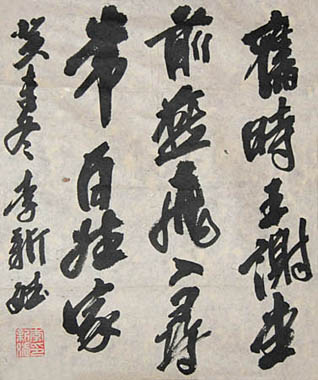 舊時王謝堂
前燕飛入尋
常百姓家
癸未冬李新